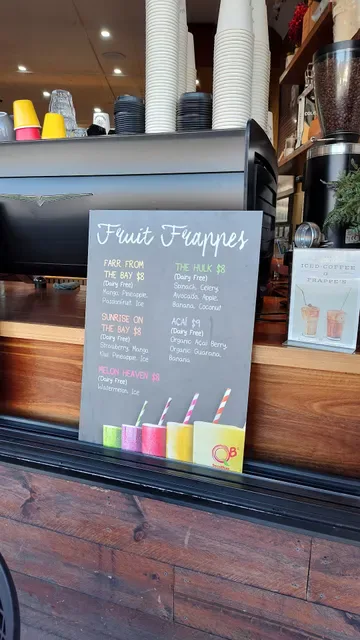 Fruit Frappes
FARR FROM
THE BAY $8
(Dairy Free)
Mango, Pineapple,
Passionfruit, Ice
SUNRISE ON
THE BAY $8
(Dairy Free)
Strawberry, Mango
Kiwi, Pineapple, Ice
MELON HEAVEN $8
(Dairy Free)
Watermelon, Ice
THE HULK $8
(Dairy Free)
Spinach, Celery,
Avocado, Apple,
Banana, Coconut
ACAÍ $9
(Dairy Free)
Organic Acai Berry,
Organic Guarana,
Banana
QB
ICED-COFFEE
&
FRAPPE'S